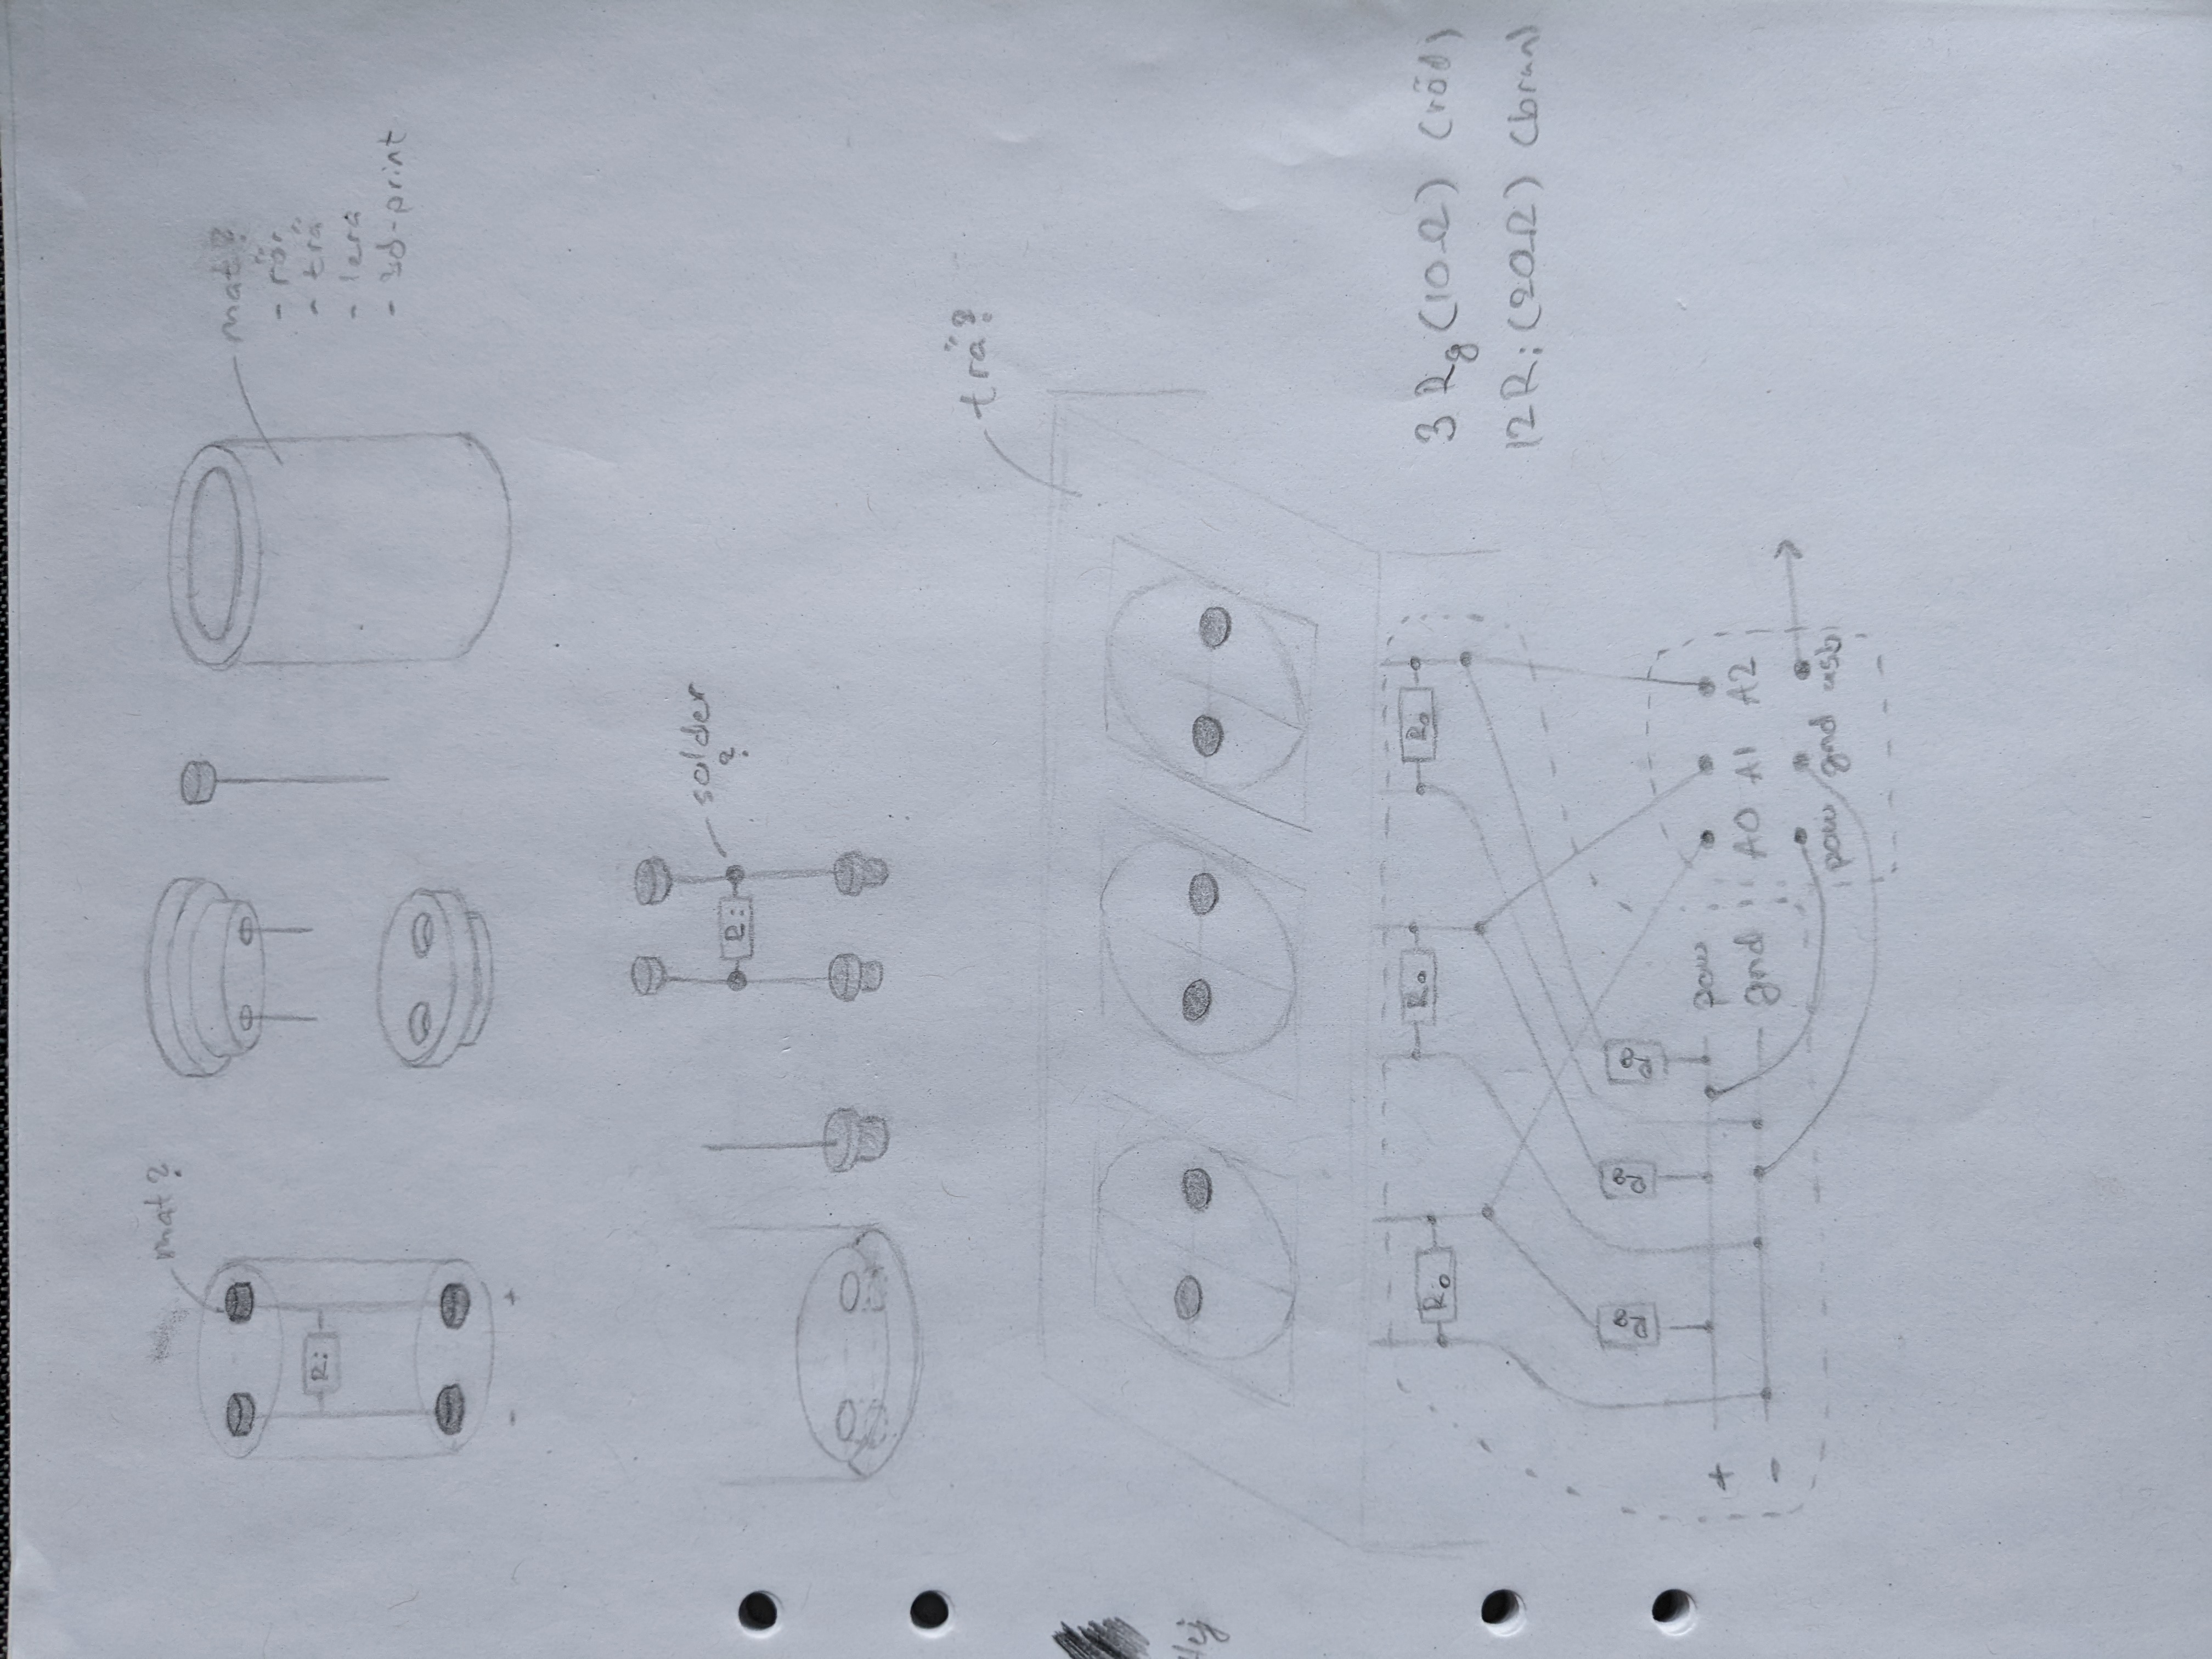 mat?
Ri
- +
mat?
- rör
- trä
- lera
- 3d-print
Ri
solder
?
trä?
Hej
R0
R0
R0
3 Rg (10Ω) (röd)
12 Ri (20Ω) (brun)
Rg
Rg
Rg
+
-
pow
gnd
A0 A1 A2
pow gnd usb